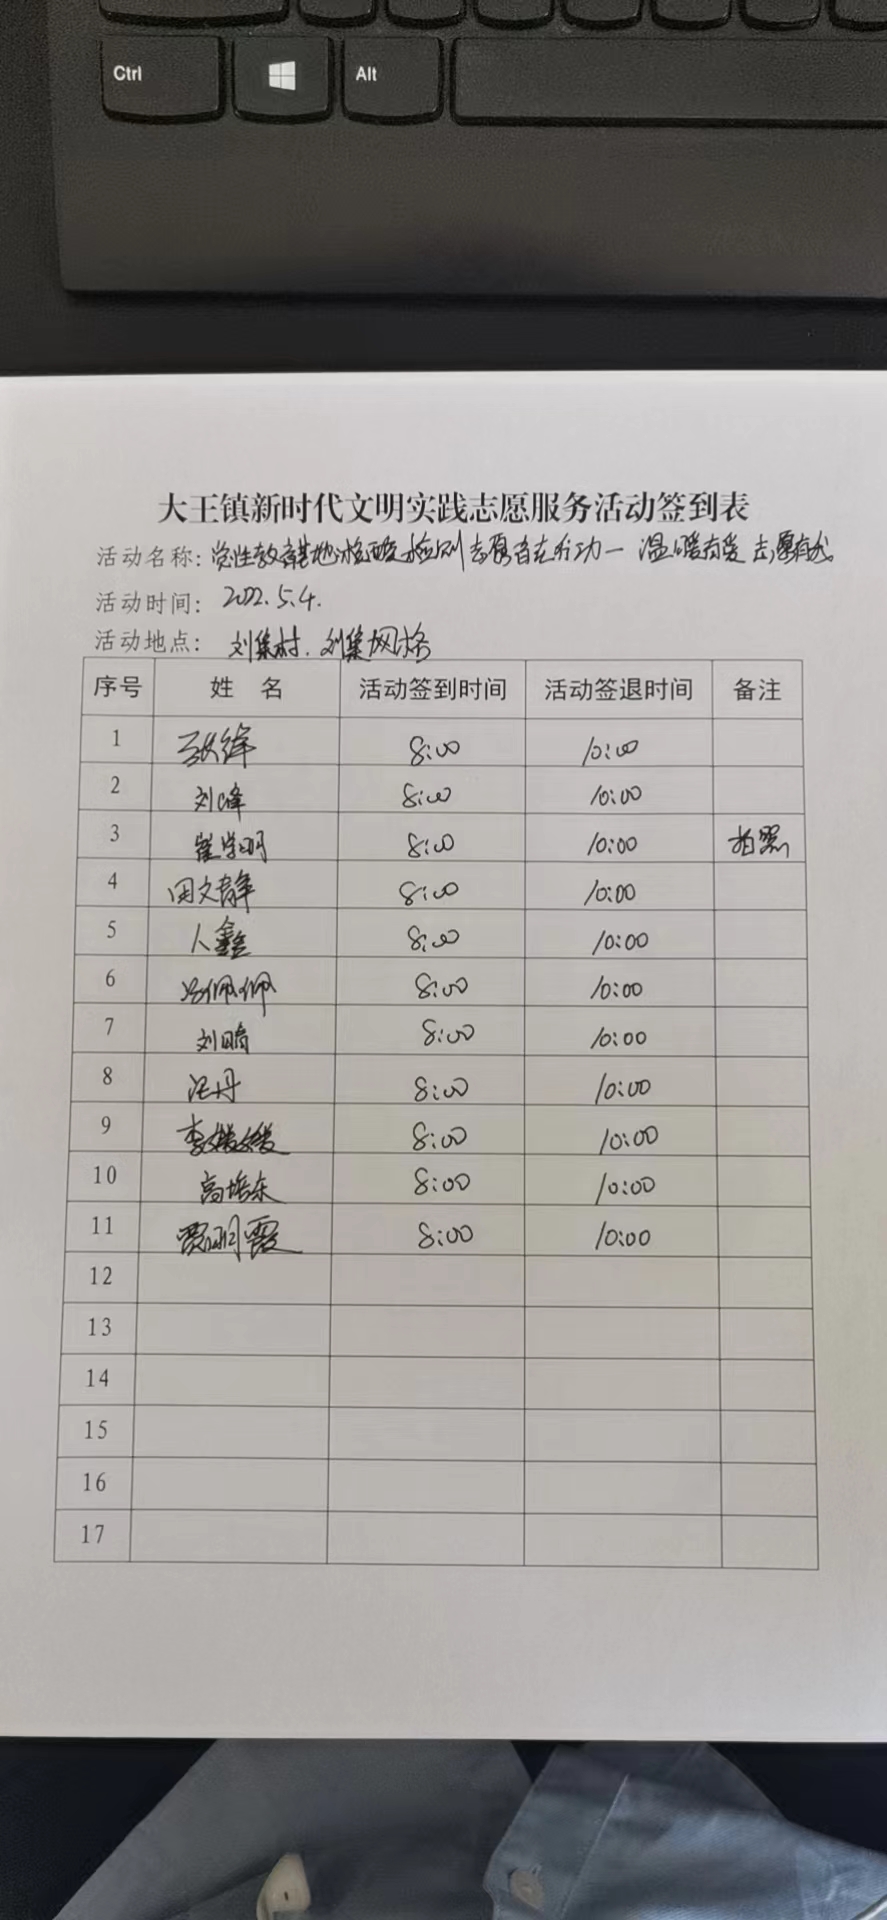 Ctrl Alt
大王镇新时代文明实践志愿服务活动签到表
活动名称：党性教育基地核酸检测志愿者在行动一 温暖有爱 志愿有我
活动时间：2022.5.4.
活动地点：刘集村、刘集网格
序号 姓 名 活动签到时间 活动签退时间 备注
1 8:00 10:00
2 刘峰 8:00 10:00
3 崔学明 8:00 10:00 拍照
4 田文静 8:00 10:00
5 鑫 8:00 10:00
6 佩佩 8:00 10:00
7 刘晴 8:00 10:00
8 丹 8:00 10:00
9 李媛媛 8:00 10:00
10 高培东 8:00 10:00
11 贾明霞 8:00 10:00
12
13
14
15
16
17